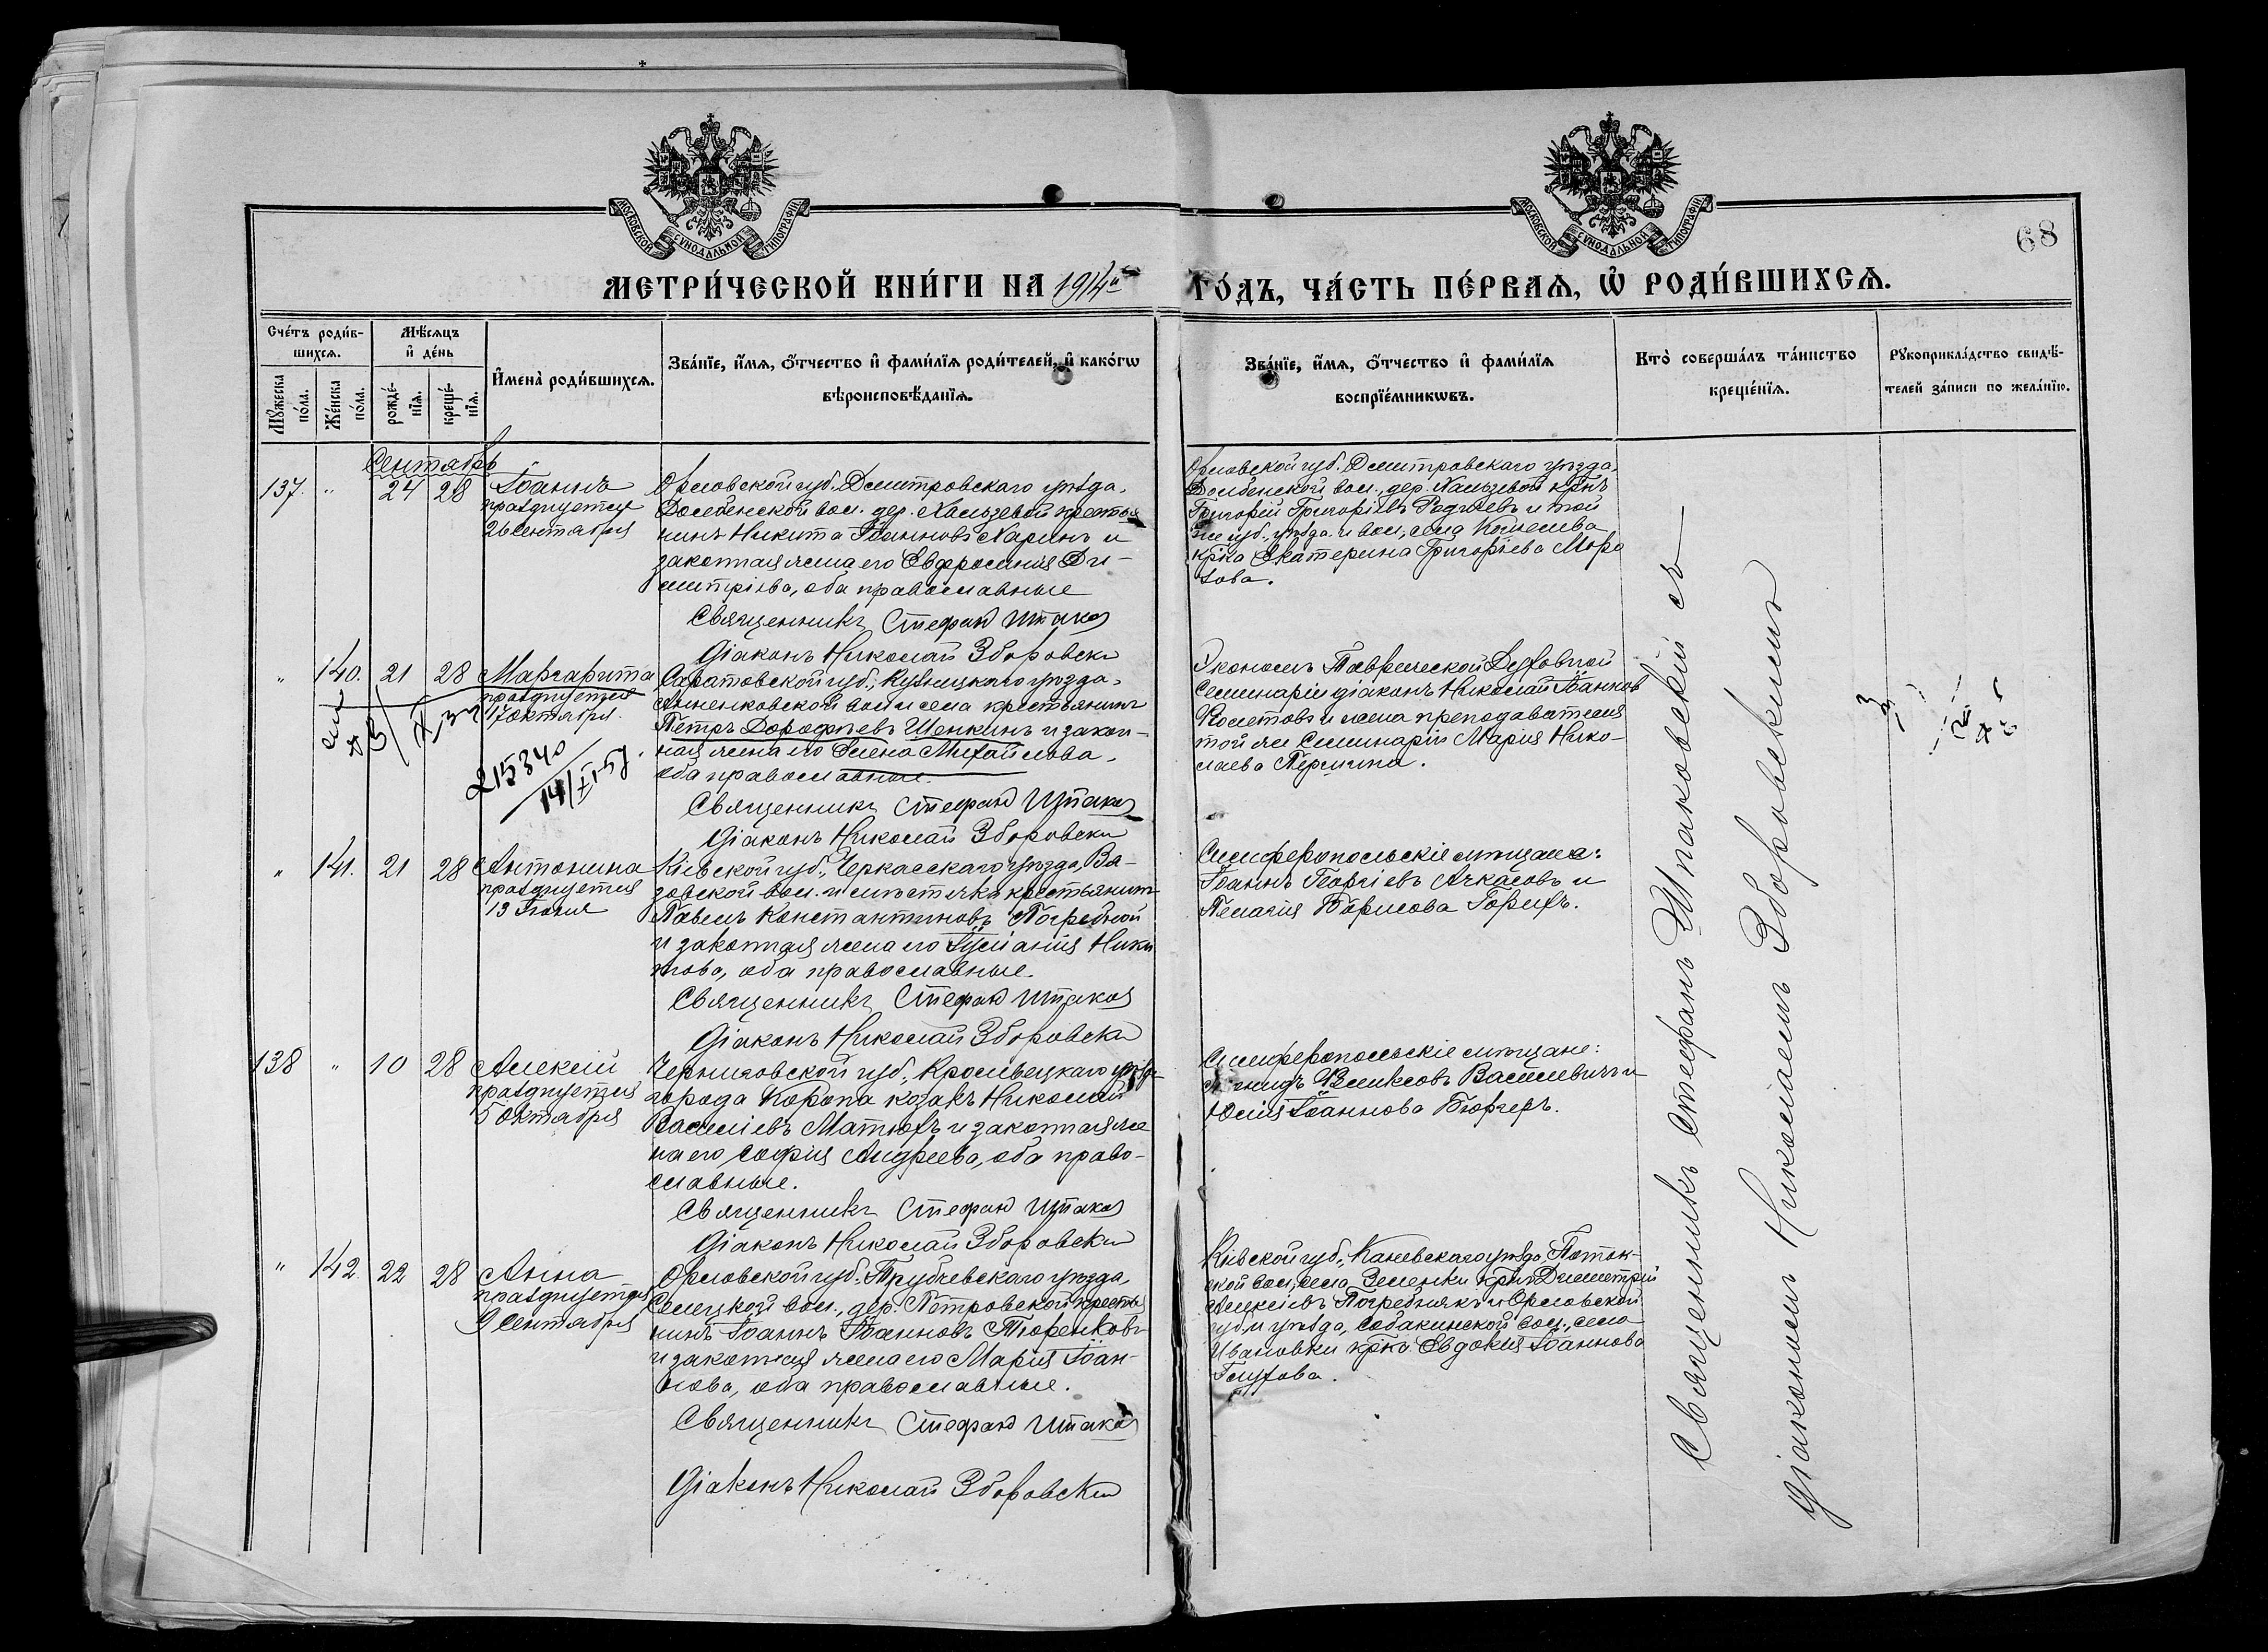 МОСКОВСКОЙ СУНОДАЛЬНОЙ ТИПОГРАФІИ
МОСКОВСКОЙ СУНОДАЛЬНОЙ ТИПОГРАФІИ
68
МЕТРИ́ЧЕСКОЙ КНИ́ГИ НА 1914й ГО́ДЪ, ЧА́СТЬ ПЕ́РВАѦ, Ѡ҆ РОДИ́ВШИХСѦ.
Сче́тъ роди́в-
шихсѧ.
Мꙋ́жеска
по́ла.
Же́нска
по́ла.
Мѣ́сѧцъ
и҆ де́нь
рожде́-
нїѧ.
креще́-
нїѧ.
И҆мена̀ роди́вшихсѧ.
Зва́нїе, и҆́мѧ, ѻ҆́тчество и҆ фами́лїѧ роди́телей, и҆ како́гѡ
вѣроисповѣ́данїѧ.
Зва́нїе, и҆́мѧ, ѻ҆́тчество и҆ фами́лїѧ
воспрїе́мникѡвъ.
Кто̀ соверша́лъ та́инство
креще́нїѧ.
Рꙋкоприкла́дство свидѣ́-
телей за́писи по жела́нїю.
Сентябрь
137. " 24 28 Іоаннъ
празднуется
26 Сентября
Орловской губ. Дмитровскаго уѣзда,
Долбенской вол. дер. Хальзевой крестья
нинъ Никита Іоанновъ Харинъ и
законная жена его Евфросинія Ди-
митріева, оба православные
Священникъ Стефан Шпаков
Діаконъ Николай Зборовски
Орловской губ. Дмитровскаго уѣзда,
Долбенской вол., дер. Хальзевой крнъ
Григорій Григорьевъ Родичевъ и той
же губ., уѣзда и вол., села
крка Екатерина Григорьева Моро
зова.
" 140. 21 28 Маргарита
празднуется
17 октября.
215340
14/XI 57.
Саратовской губ., Кузнецкаго уѣзда,
Анненковской вол. и села крестьянинъ
Петръ Дорофѣевъ Щенкинъ и закон-
ная жена его Елена Михайлова,
оба православные.
Священникъ Стефан Шпаков
Діаконъ Николай Зборовски
Экономъ Таврической Духовной
Семинаріи діаконъ Николай Іоаннов
Кометовъ и жена преподавателя
той же Семинаріи Марія Нико-
лаева
" 141. 21 28 Антонина
празднуется
13 Іюня
Кіевской губ., Черкасскаго уѣзда, Вя-
зовской вол. и мѣстечка крестьянинъ
Павелъ Константиновъ Погребной
и законная жена его Іуліанія Ники
това, оба православные.
Священникъ Стефан Шпаков
Діаконъ Николай Зборовски
Симферопольскіе мѣщане:
Іоаннъ Георгіевъ Ачкасовъ и
Пелагія Борисова Горихъ.
138 " 10 28 Алексій
празднуется
5 Октября
Черниговской губ., Кролевецкаго уѣзда
города Коропа козакъ Николай
Василіевъ Матюхъ и законная же
на его Софія Андреева, оба право-
славные.
Священникъ Стефан Шпаков
Діаконъ Николай Зборовски
Симферопольскіе мѣщане:
Василевичъ и
Юлія Іоаннова Бюргеръ.
" 142. 22 28 Анна
празднуется
9 Сентября
Орловской губ. Трубчевскаго уѣзда,
Селецкой вол., дер. Петровской крестья
нинъ Іоаннъ Іоанновъ Тюренковъ
и законная жена его Марія Іоан-
нова, оба православные.
Священникъ Стефан Шпаков
Діаконъ Николай Зборовски
Кіевской губ., Каневскаго уѣзда, Поток-
ской вол., села Зеленки крнъ Димитрій
Алексіевъ Погребнякъ и Орловской
губ. и уѣзда, Собакинской вол., села
Ивановки крка Евдокія Іоаннова
Глухова.
Священникъ Стефанъ Шпаковскій съ
діакономъ Николаемъ Зборовскимъ